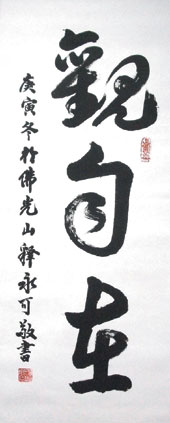 觀自在
庚寅冬於佛光山釋永可敬書